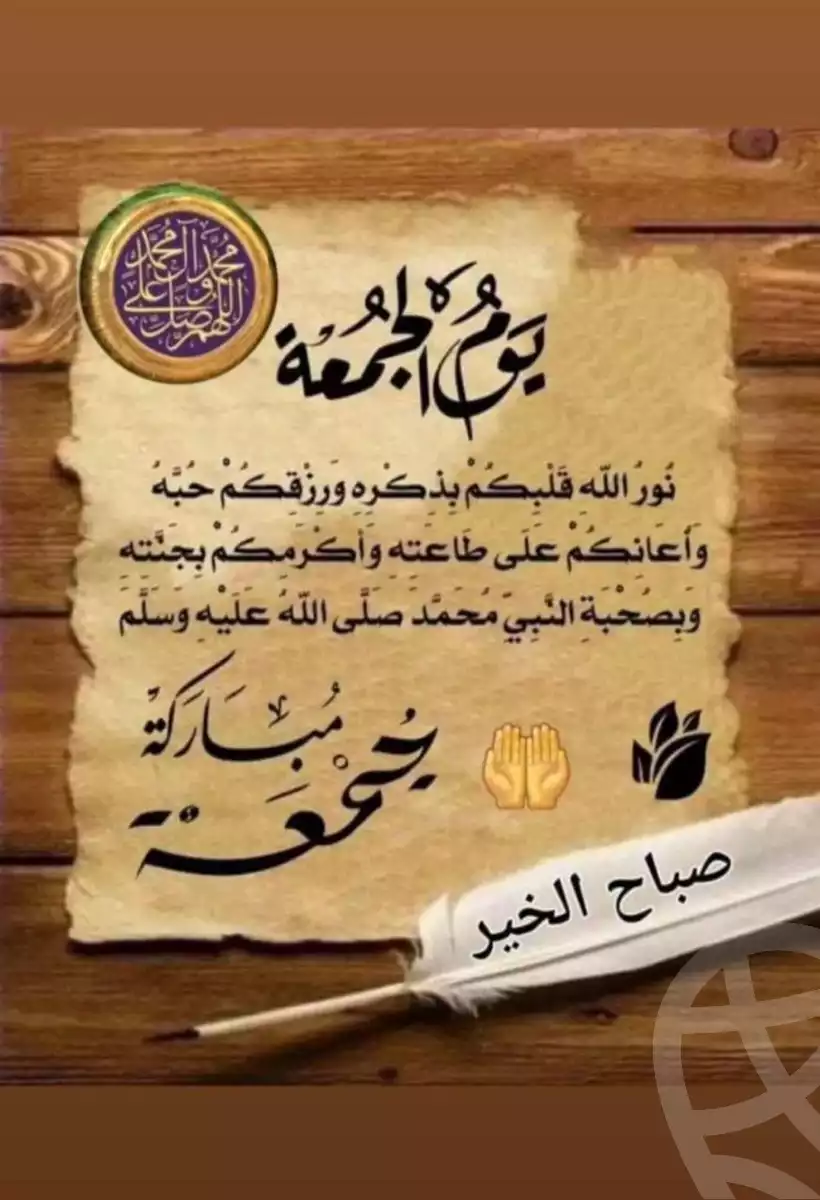 اللهم صل على محمد وآل محمد
يَومُ الجُمعة
نُورُ اللّهِ قَلْبِكُمْ بِذِكْرِهِ وَرِزْقِكُمْ حُبَّهُ
وَأَعَانِكُمْ عَلَى طَاعَتهِ وَأَكْرَمِكُمْ بِجَنَّتهِ
وَبِصُحْبَةِ النَّبِيّ مُحَمَّدَ صَلَّى اللّهُ عَلَيْهِ وَسَلَّمَ
جُمْعَة
مُبَارَكَة
صباح الخير